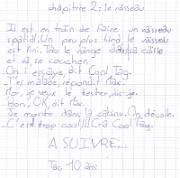 chapitre 2 : le vaisseau
Il est en train de faire un vaisseau
spatial. Un peu plus tard, le vaisseau
est fini. Tao le range dans sa caisse
et va se coucher.
On l'essaye, dit Cool Tag.
T'es malade, répondit Max.
Moi, je veux le tester, dit-je.
Bon, OK, dit Max.
Je monte dans la cabine. On décolle.
C'est trop cool!!! Cria Cool Tag.
A SUIVRE...
Tao 10 ans